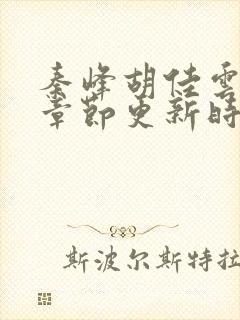 秦峰胡佳雲
章節更新時
斯波尔斯特拉